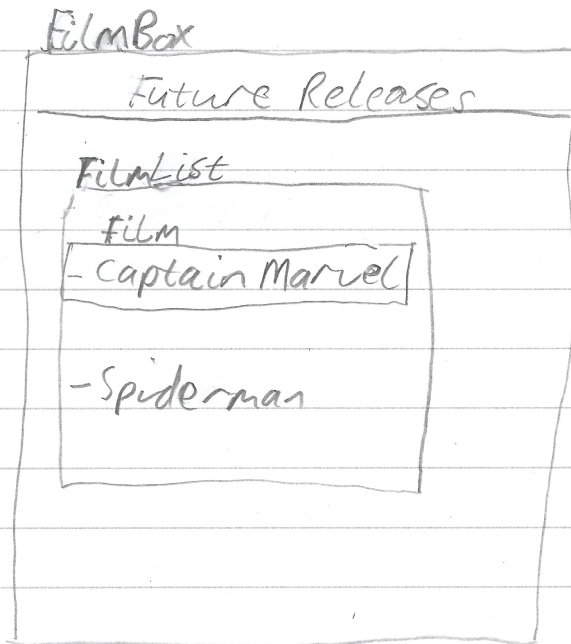 FilmBox
Future Releases
FilmList
Film
- Captain Marvel
- Spiderman